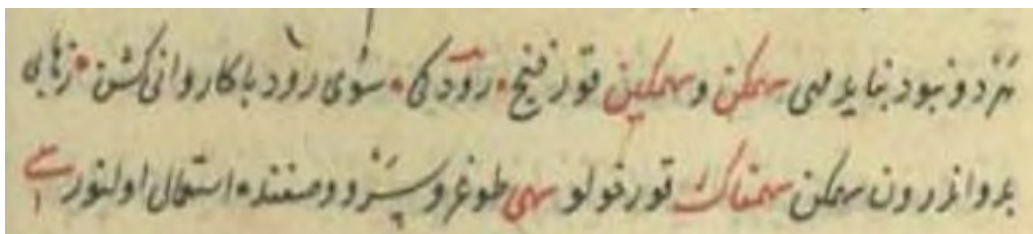 نزد و نبود بنا بد مهی سهمکن و سهمکین قورقنج رودکی سوی رود با کاروانی کشن زهابی
بدو اندرون سهمکن سهمناک قورقولو سهی طوغرو سرو وصفنده استعمال اولنور